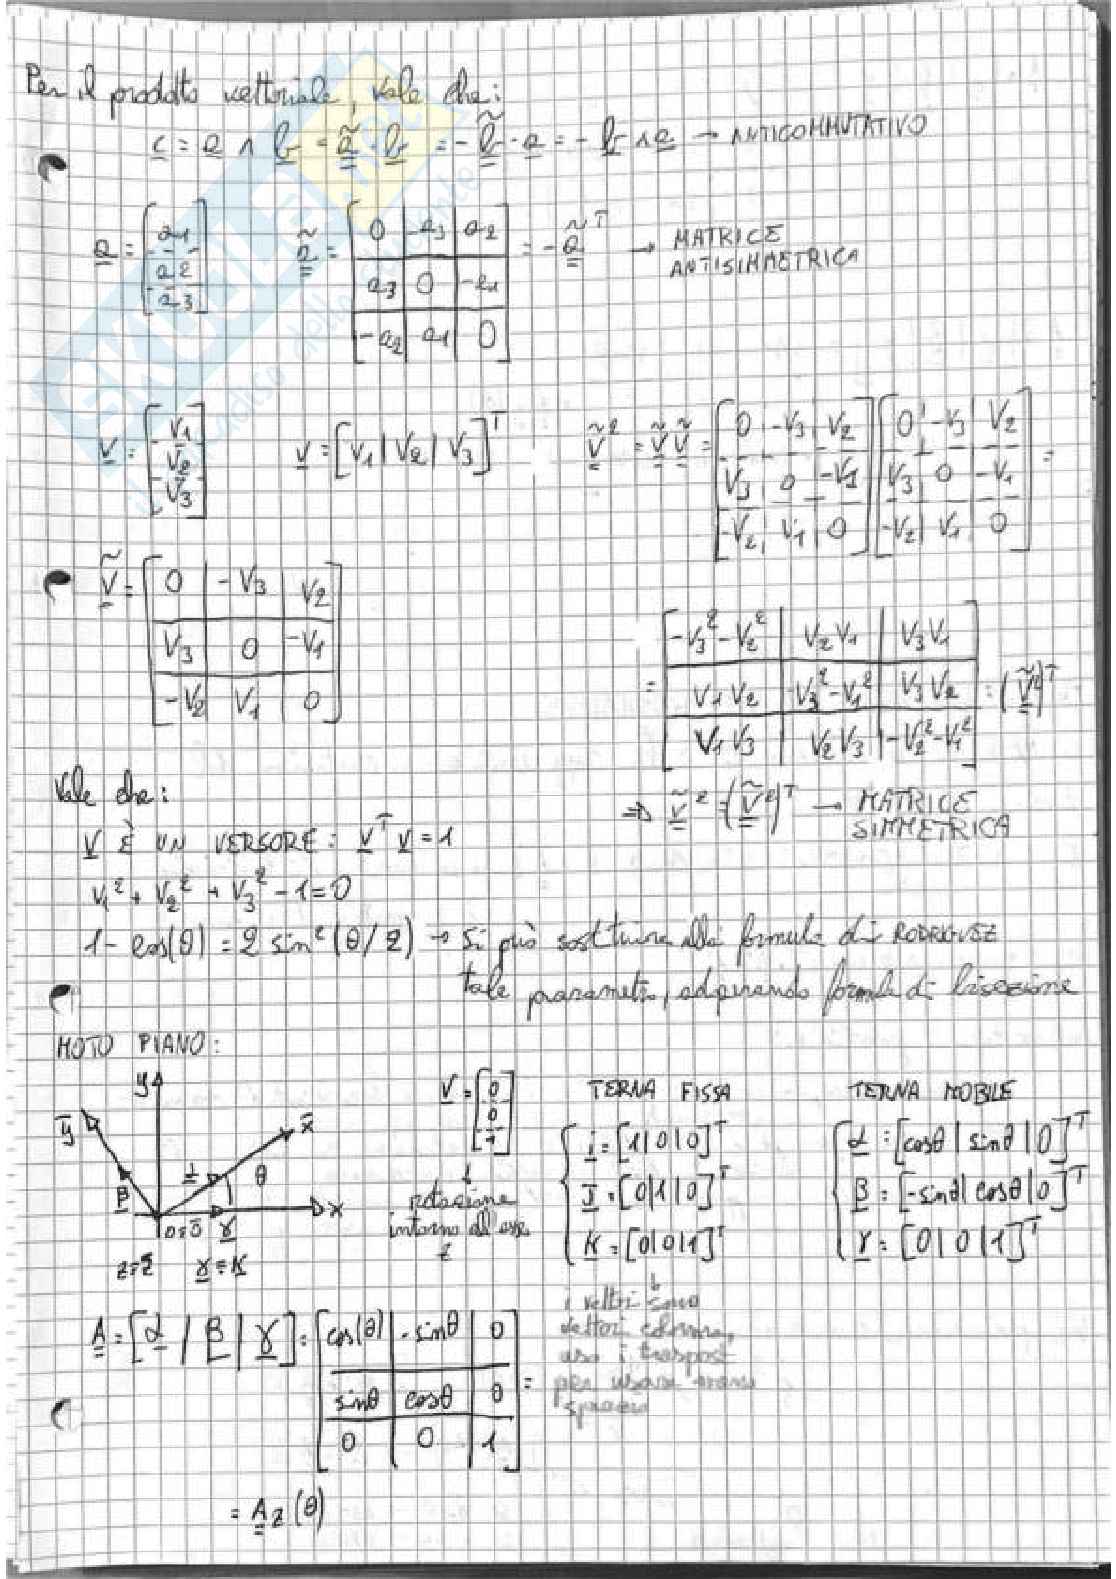 Per il prodotto vettoriale, vale che:
c = a ∧ b = ã · b = - b̃ · a = - b ∧ a → ANTICOMMUTATIVO
a = [a1 | a2 | a3]  ã = [0 | -a3 | a2 ; a3 | 0 | -a1 ; -a2 | a1 | 0] = - ã^T → MATRICE
ANTISIMMETRICA
V = [V1 | V2 | V3]  V = [V1 | V2 | V3]^T  Ṽ² = Ṽ Ṽ = [0 | -V3 | V2 ; V3 | 0 | -V1 ; -V2 | V1 | 0] [0 | -V3 | V2 ; V3 | 0 | -V1 ; -V2 | V1 | 0] =
Ṽ = [0 | -V3 | V2 ; V3 | 0 | -V1 ; -V2 | V1 | 0]
= [-V3²-V2² | V2V1 | V3V1 ; V1V2 | -V3²-V1² | V3V2 ; V1V3 | V2V3 | -V2²-V1²] = (Ṽ²)^T
⇒ Ṽ² = (Ṽ²)^T → MATRICE
SIMMETRICA
Vale che:
V È UN VERSORE: V^T V = 1
V1² + V2² + V3² - 1 = 0
1 - cos(θ) = 2 sin²(θ/2) → si può sostituire alla formula di RODRIGUEZ
tale parametro, adoperando formule di bisezione
MOTO PIANO:
y
ȳ
x̄
α
θ
β
O≡Ō
γ
x
z≡z̄ γ≡K
V = [0 | 0 | 1]
rotazione
intorno all'asse
z
TERNA FISSA
i = [1|0|0]^T
J = [0|1|0]^T
K = [0|0|1]^T
TERNA MOBILE
α = [cosθ | sinθ | 0]^T
β = [-sinθ | cosθ | 0]^T
γ = [0 | 0 | 1]^T
i vettori sono
vettori colonna,
uso i trasposti
per usare meno
spazio
A = [α | β | γ] = [cos(θ) | -sinθ | 0 ; sinθ | cosθ | 0 ; 0 | 0 | 1] =
= Az(θ)